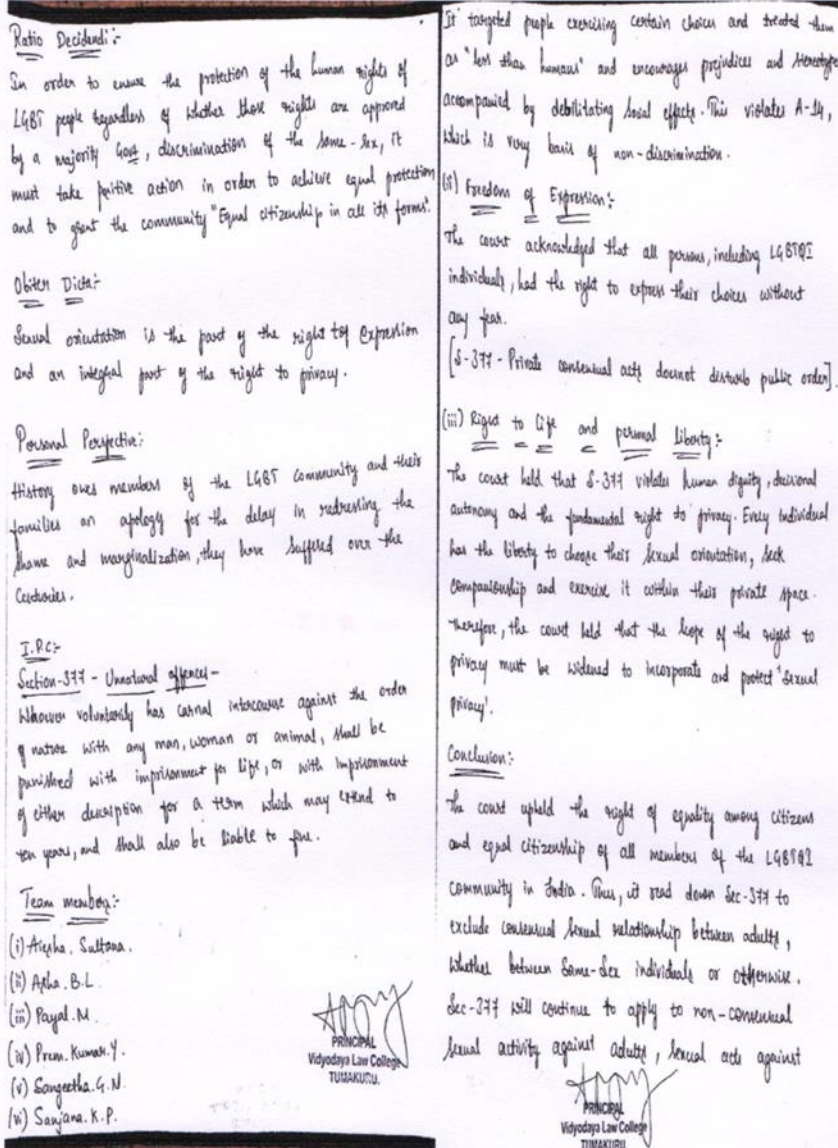 Ratio Decidendi :-
In order to ensure the protection of the human rights of
LGBT people regardless of whether those rights are approved
by a majority Govt, discrimination of the same-sex, it
must take positive action in order to achieve equal protection
and to grant the community "Equal citizenship in all its forms".
Obiter Dicta:-
Sexual orientation is the part of the right to expression
and an integral part of the right to privacy.
Personal Perspective:-
History owes members of the LGBT community and their
families an apology for the delay in redressing the
shame and marginalization, they have suffered over the
Centuries.
I.P.C:-
Section-377 - Unnatural offences-
Whoever voluntarily has carnal intercourse against the order
of nature with any man, woman or animal, shall be
punished with imprisonment for life, or with imprisonment
of either description for a term which may extend to
ten years, and shall also be liable to fine.
Team members:-
(i) Aiesha. Sultana.
(ii) Asha. B.L.
(iii) Payal. M.
(iv) Prem. Kumar. Y.
(v) Sangeetha. G. N.
(vi) Sanjana. K. P.
PRINCIPAL
Vidyodaya Law College
TUMAKURU.
It targeted people exercising certain choices and treated them
as "less than humans" and encourages prejudices and stereotype
accompanied by debilitating social effects. This violates A-14,
which is very basis of non-discrimination.
(ii) Freedom of Expression:-
The court acknowledged that all persons, including LGBTQI
individuals, had the right to express their choices without
any fear.
[S-377 - Private consensual acts doesnot disturb public order].
(iii) Right to life and personal liberty:-
The court held that S-377 violates human dignity, decisional
autonomy and the fundamental right to privacy. Every individual
has the liberty to choose their sexual orientation, seek
companionship and exercise it within their private space.
therefore, the court held that the scope of the right to
privacy must be widened to incorporate and protect 'sexual
privacy'.
Conclusion:-
The court upheld the right of equality among citizens
and equal citizenship of all members of the LGBTQI
community in India. Thus, it read down Sec-377 to
exclude consensual sexual relationship between adults,
whether between Same-Sex individuals or otherwise.
Sec-377 will continue to apply to non-consensual
sexual activity against adults, sexual acts against
PRINCIPAL
Vidyodaya Law College
TUMAKURU